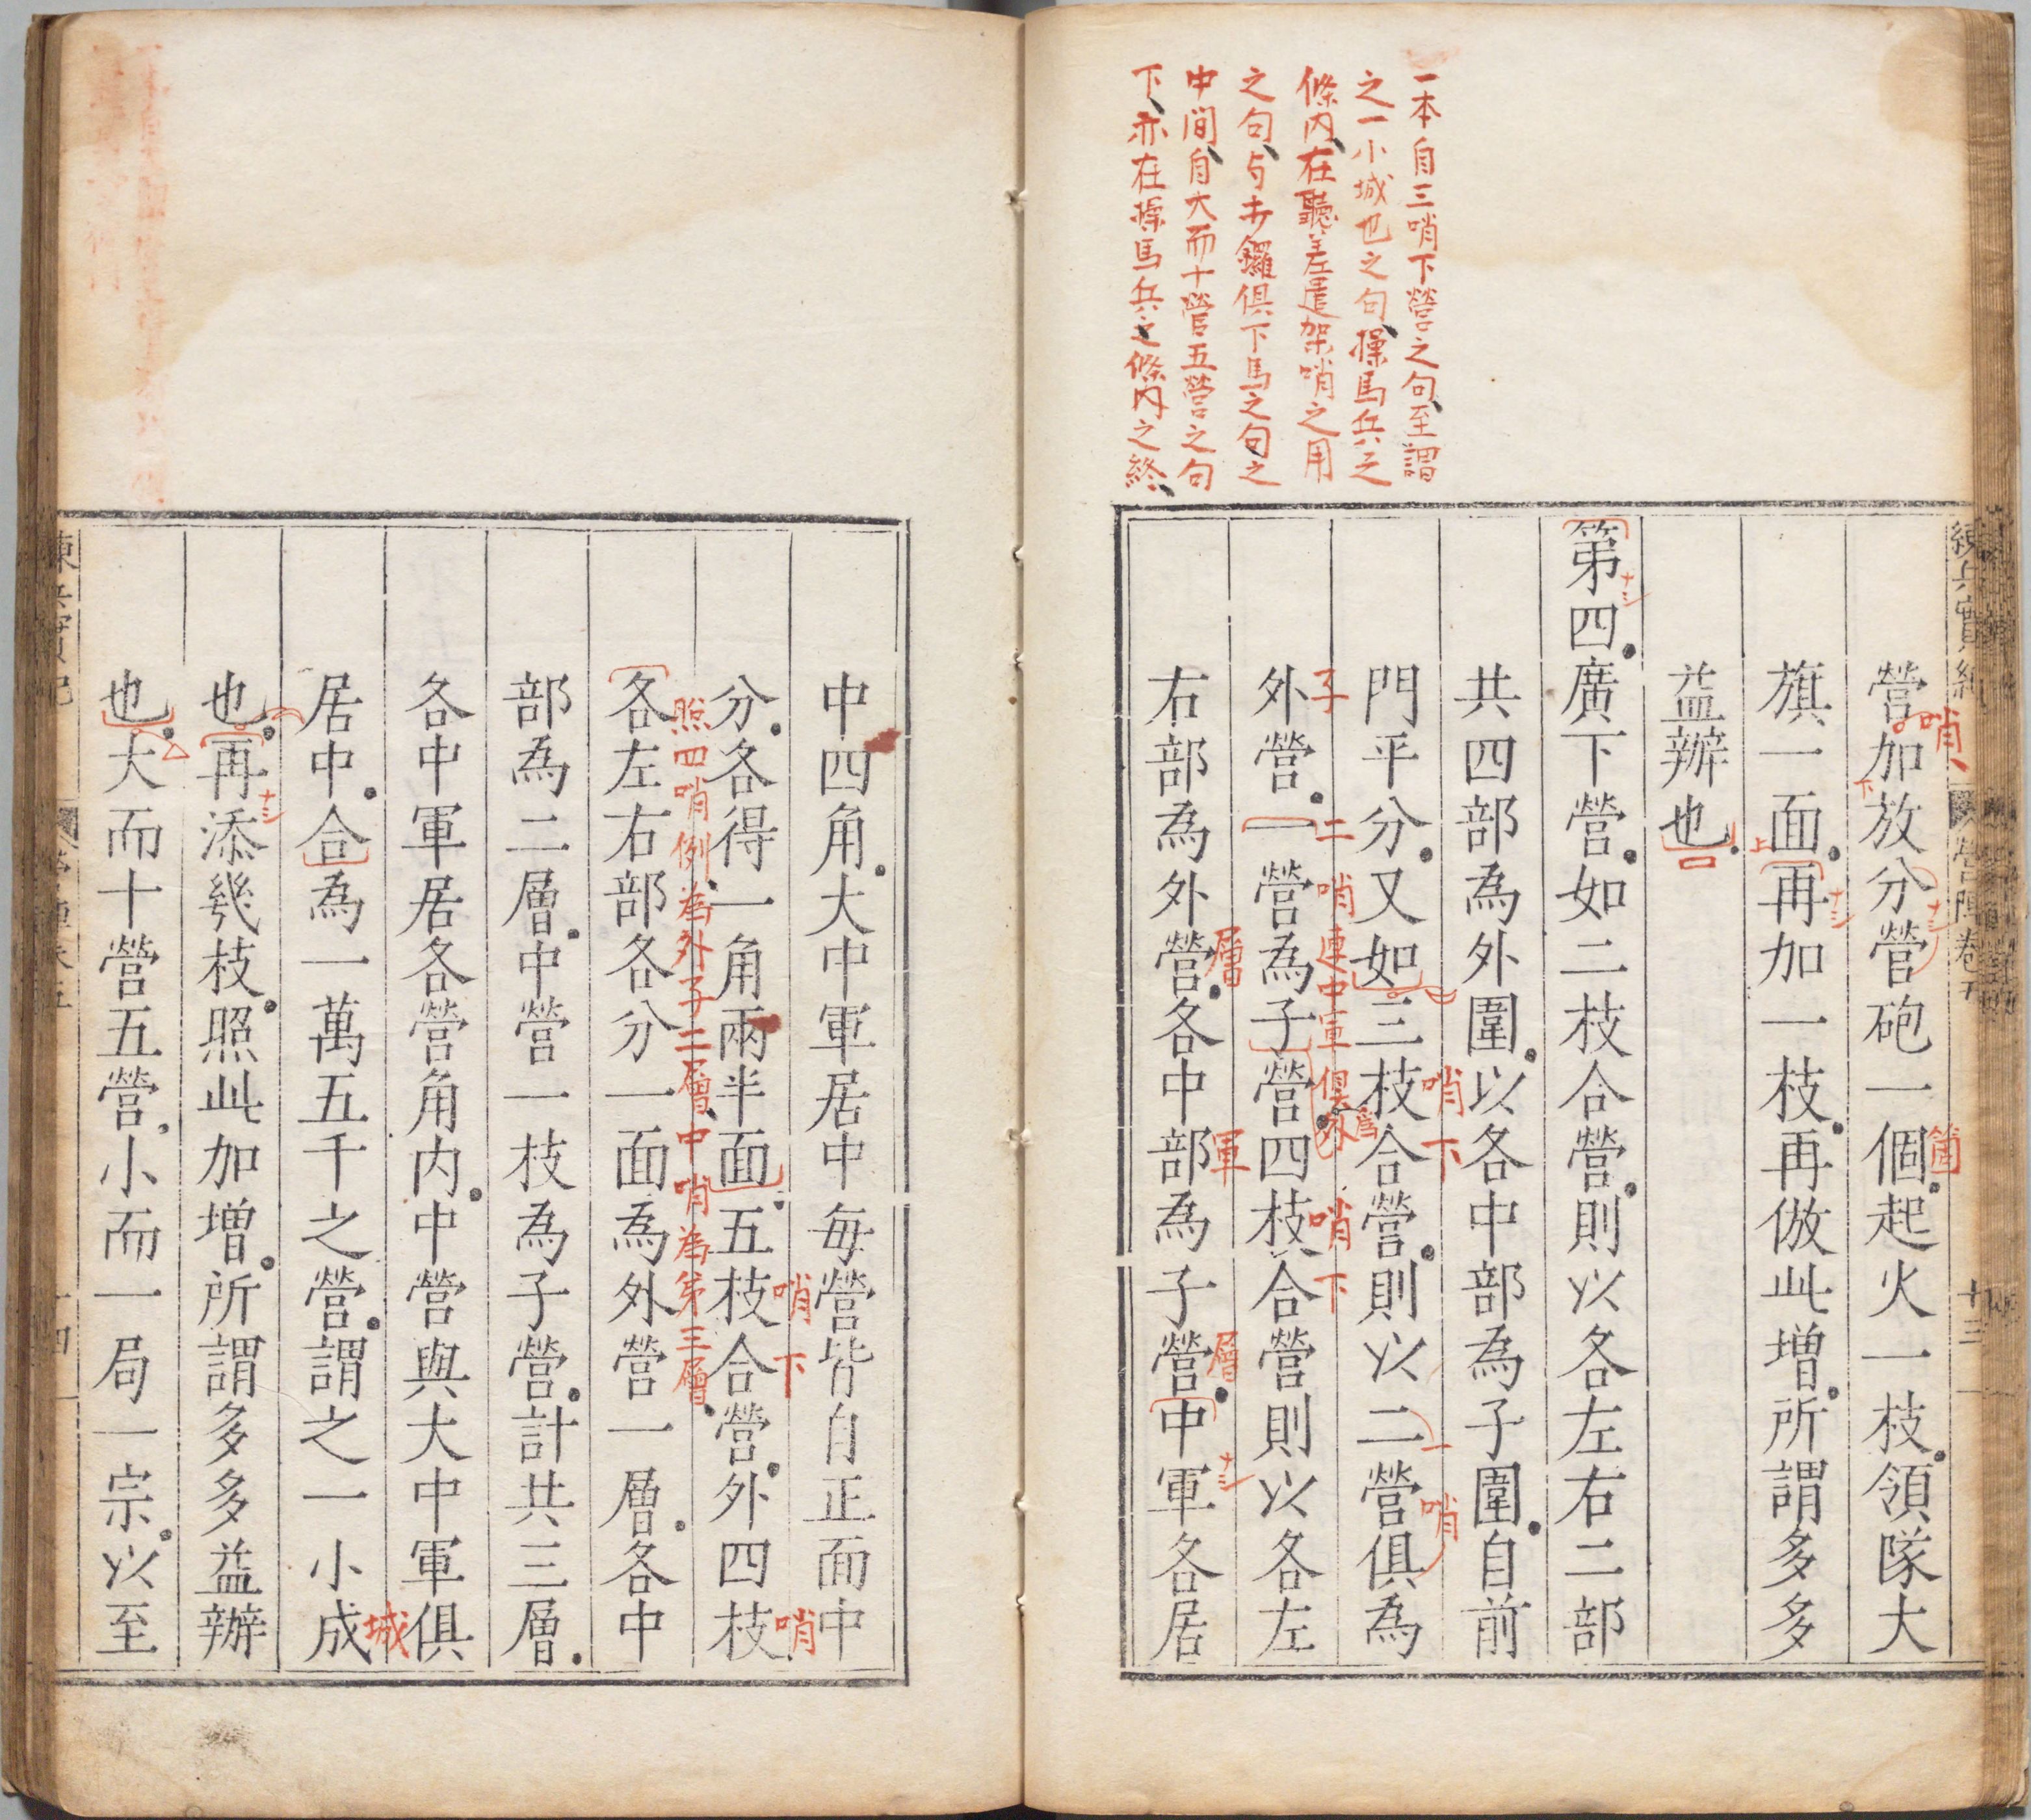 一本自三哨下營之句至謂
之一小城也之句操馬兵之
條内在聽差遣架哨之用
之句与未鑼俱下馬之句之
中間自大而十營五營之句
下亦在操馬兵之條内之終
營加放分營砲一個起火一枝領隊大
哨
下
箇
旗一面再加一枝再倣此増所謂多多
上
益辦也
第四廣下營如二枝合營則以各左右二部
共四部為外圍以各中部為子圍自前
哨下
一
哨
門平分又如三枝合營則以二營俱為
子
二哨連中軍俱為外
哨下
外營一營為子營四枝合營則以各左
層
軍
層
右部為外營各中部為子營中軍各居
中四角大中軍居中毎營皆自正面中
哨下
哨
分各得一角兩半面五枝合營外四枝
照四哨例為外子二層中哨為第三層
各左右部各分一面為外營一層各中
部為二層中營一枝為子營計共三層
各中軍居各營角内中營與大中軍俱
城
居中合為一萬五千之營謂之一小成
也再添幾枝照此加増所謂多多益辦
也大而十營五營小而一局一宗以至